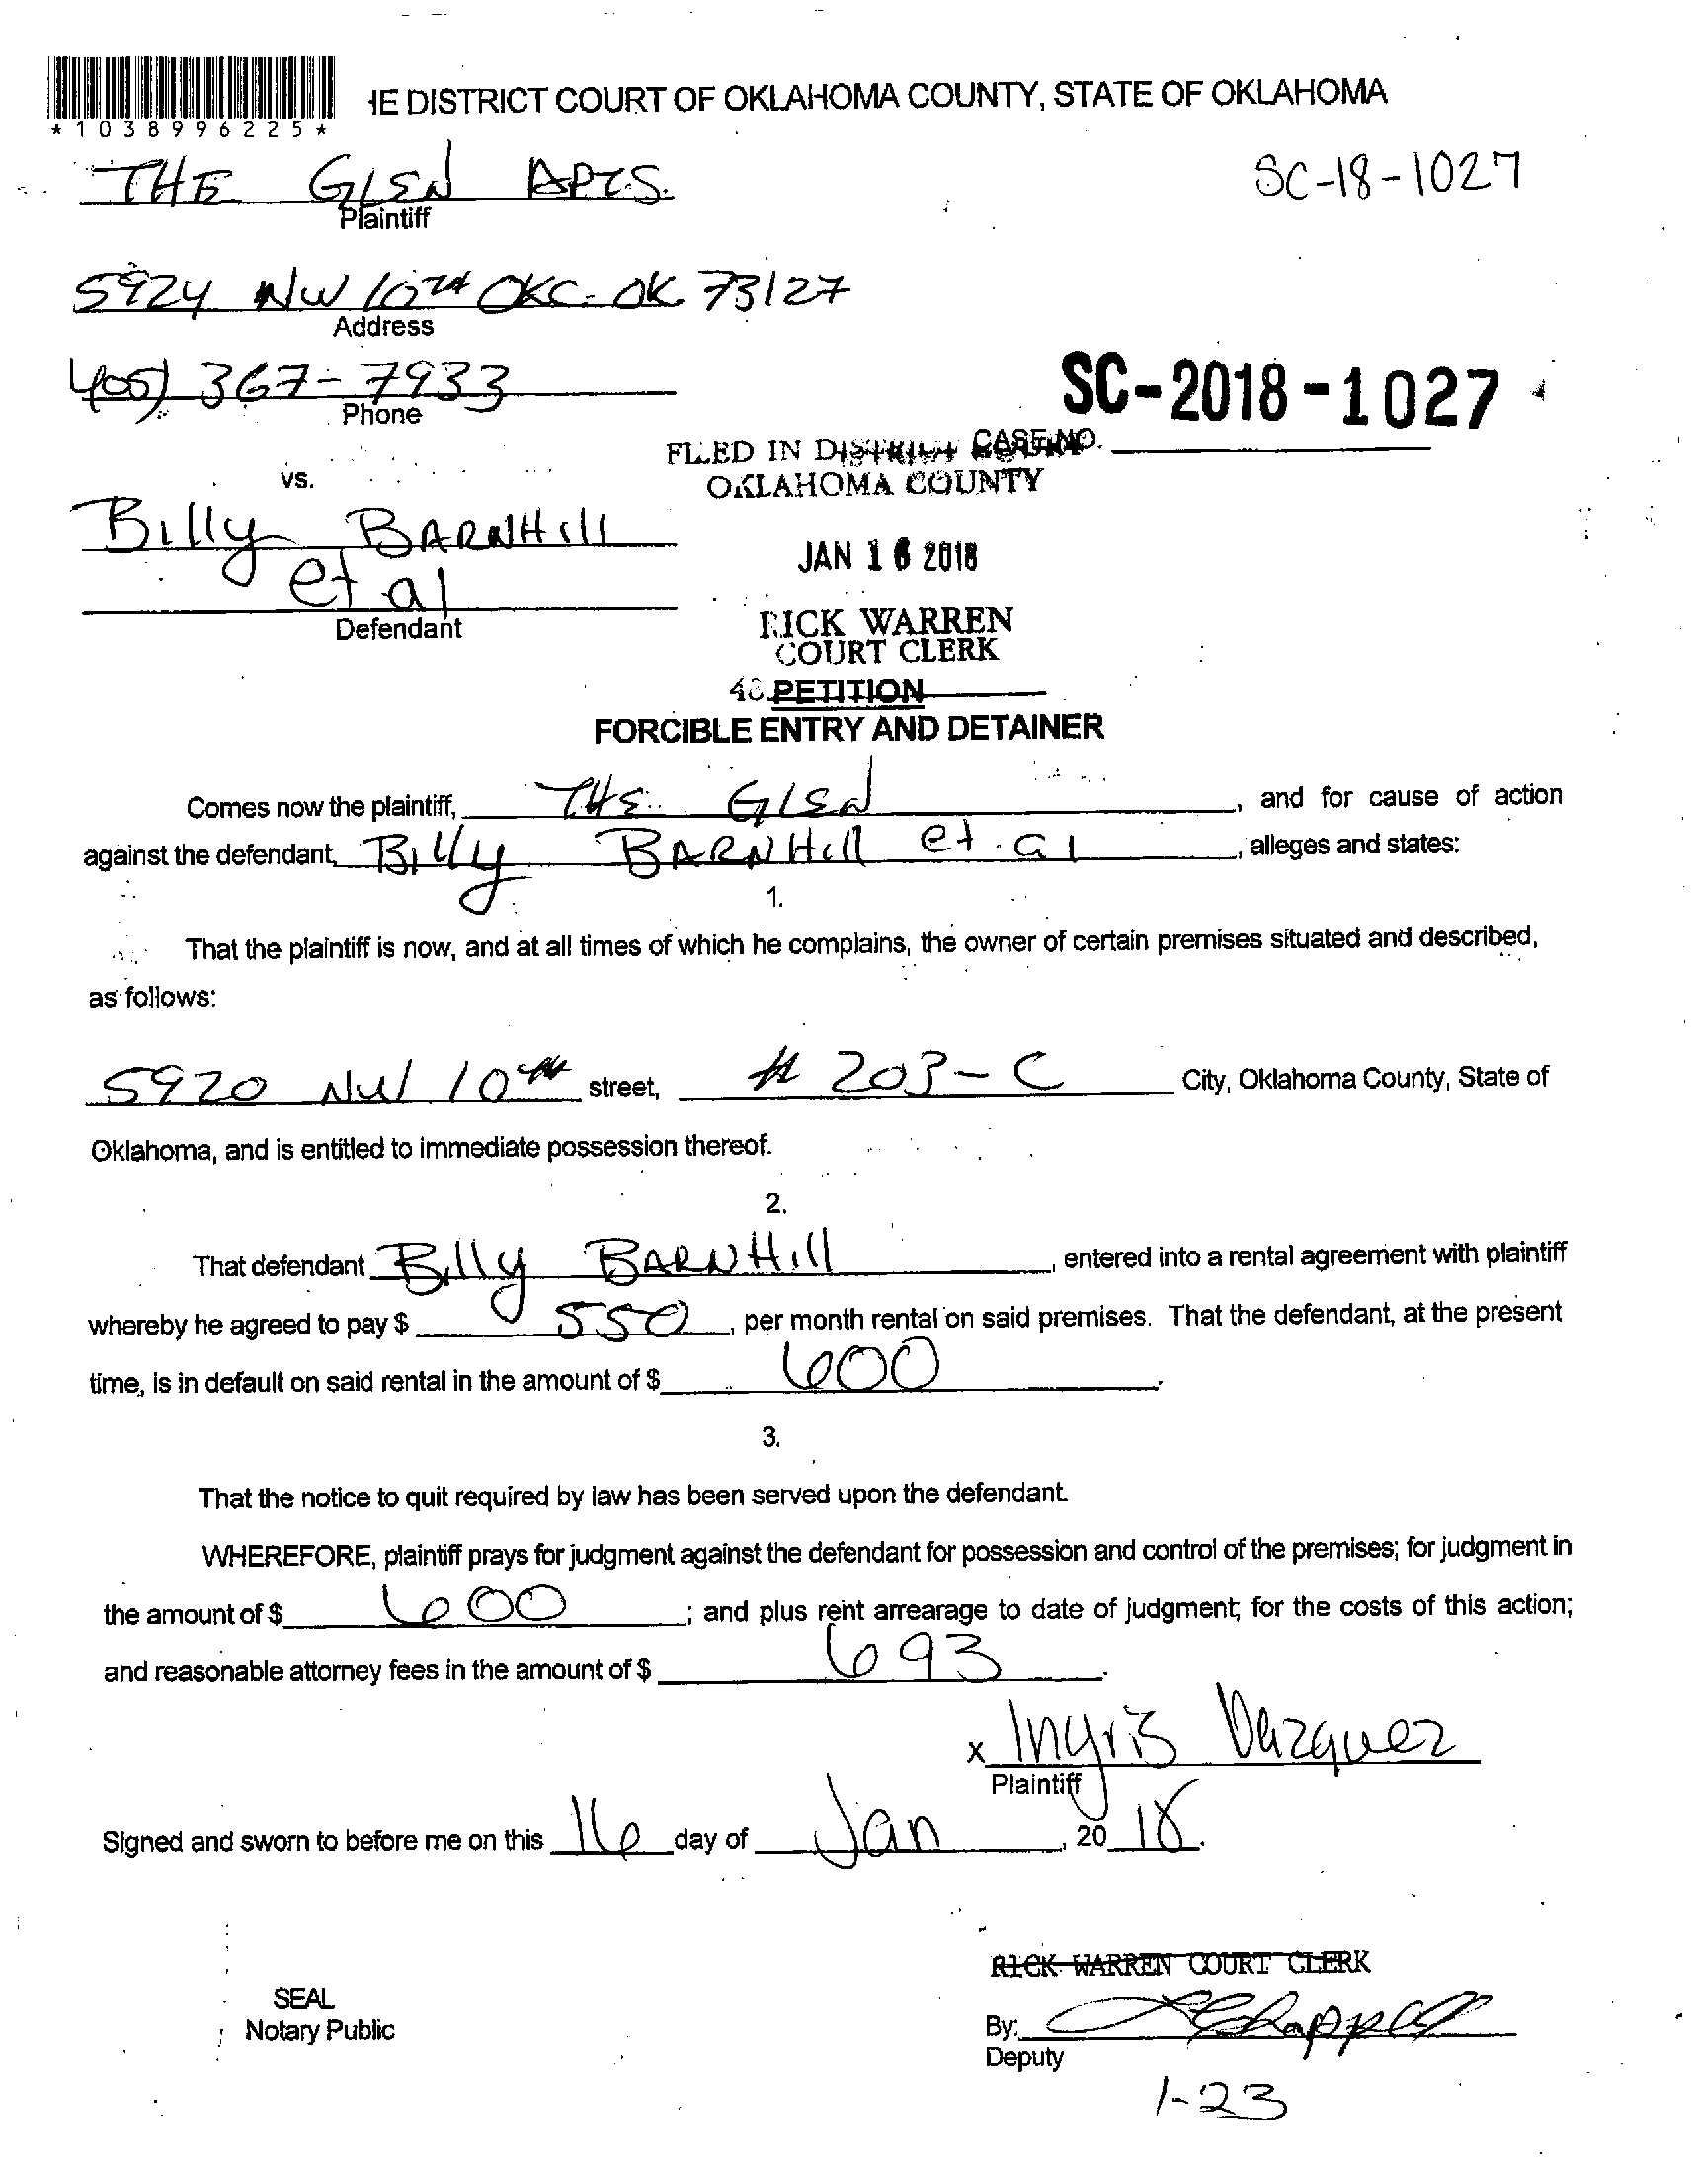 IE DISTRICT COURT OF OKLAHOMA COUNTY, STATE OF OKLAHOMA
*1038996225*
THE GLEN APTS.
SC-18-1027
Plaintiff
5924 NW 10TH OKC. OK 73127
Address
405) 367-7933
Phone
SC-2018-1027
CASE NO.
FILED IN DISTRICT COURT
OKLAHOMA COUNTY
vs.
Billy BARNHill
JAN 16 2018
et al
Defendant
RICK WARREN
COURT CLERK
PETITION
FORCIBLE ENTRY AND DETAINER
Comes now the plaintiff, THE GLEN, and for cause of action
against the defendant, Billy BARNHill et.al, alleges and states:
1.
That the plaintiff is now, and at all times of which he complains, the owner of certain premises situated and described,
as follows:
5920 NW 10th street, # 203-C City, Oklahoma County, State of
Oklahoma, and is entitled to immediate possession thereof.
2.
That defendant Billy BARNHill, entered into a rental agreement with plaintiff
whereby he agreed to pay $ 550, per month rental on said premises. That the defendant, at the present
time, is in default on said rental in the amount of $ 600.
3.
That the notice to quit required by law has been served upon the defendant.
WHEREFORE, plaintiff prays for judgment against the defendant for possession and control of the premises; for judgment in
the amount of $ 600; and plus rent arrearage to date of judgment; for the costs of this action;
and reasonable attorney fees in the amount of $ 693.
x Ingris Vazquez
Plaintiff
Signed and sworn to before me on this 16 day of Jan, 20 18.
RICK WARREN COURT CLERK
SEAL
Notary Public
By:
Deputy
1-23